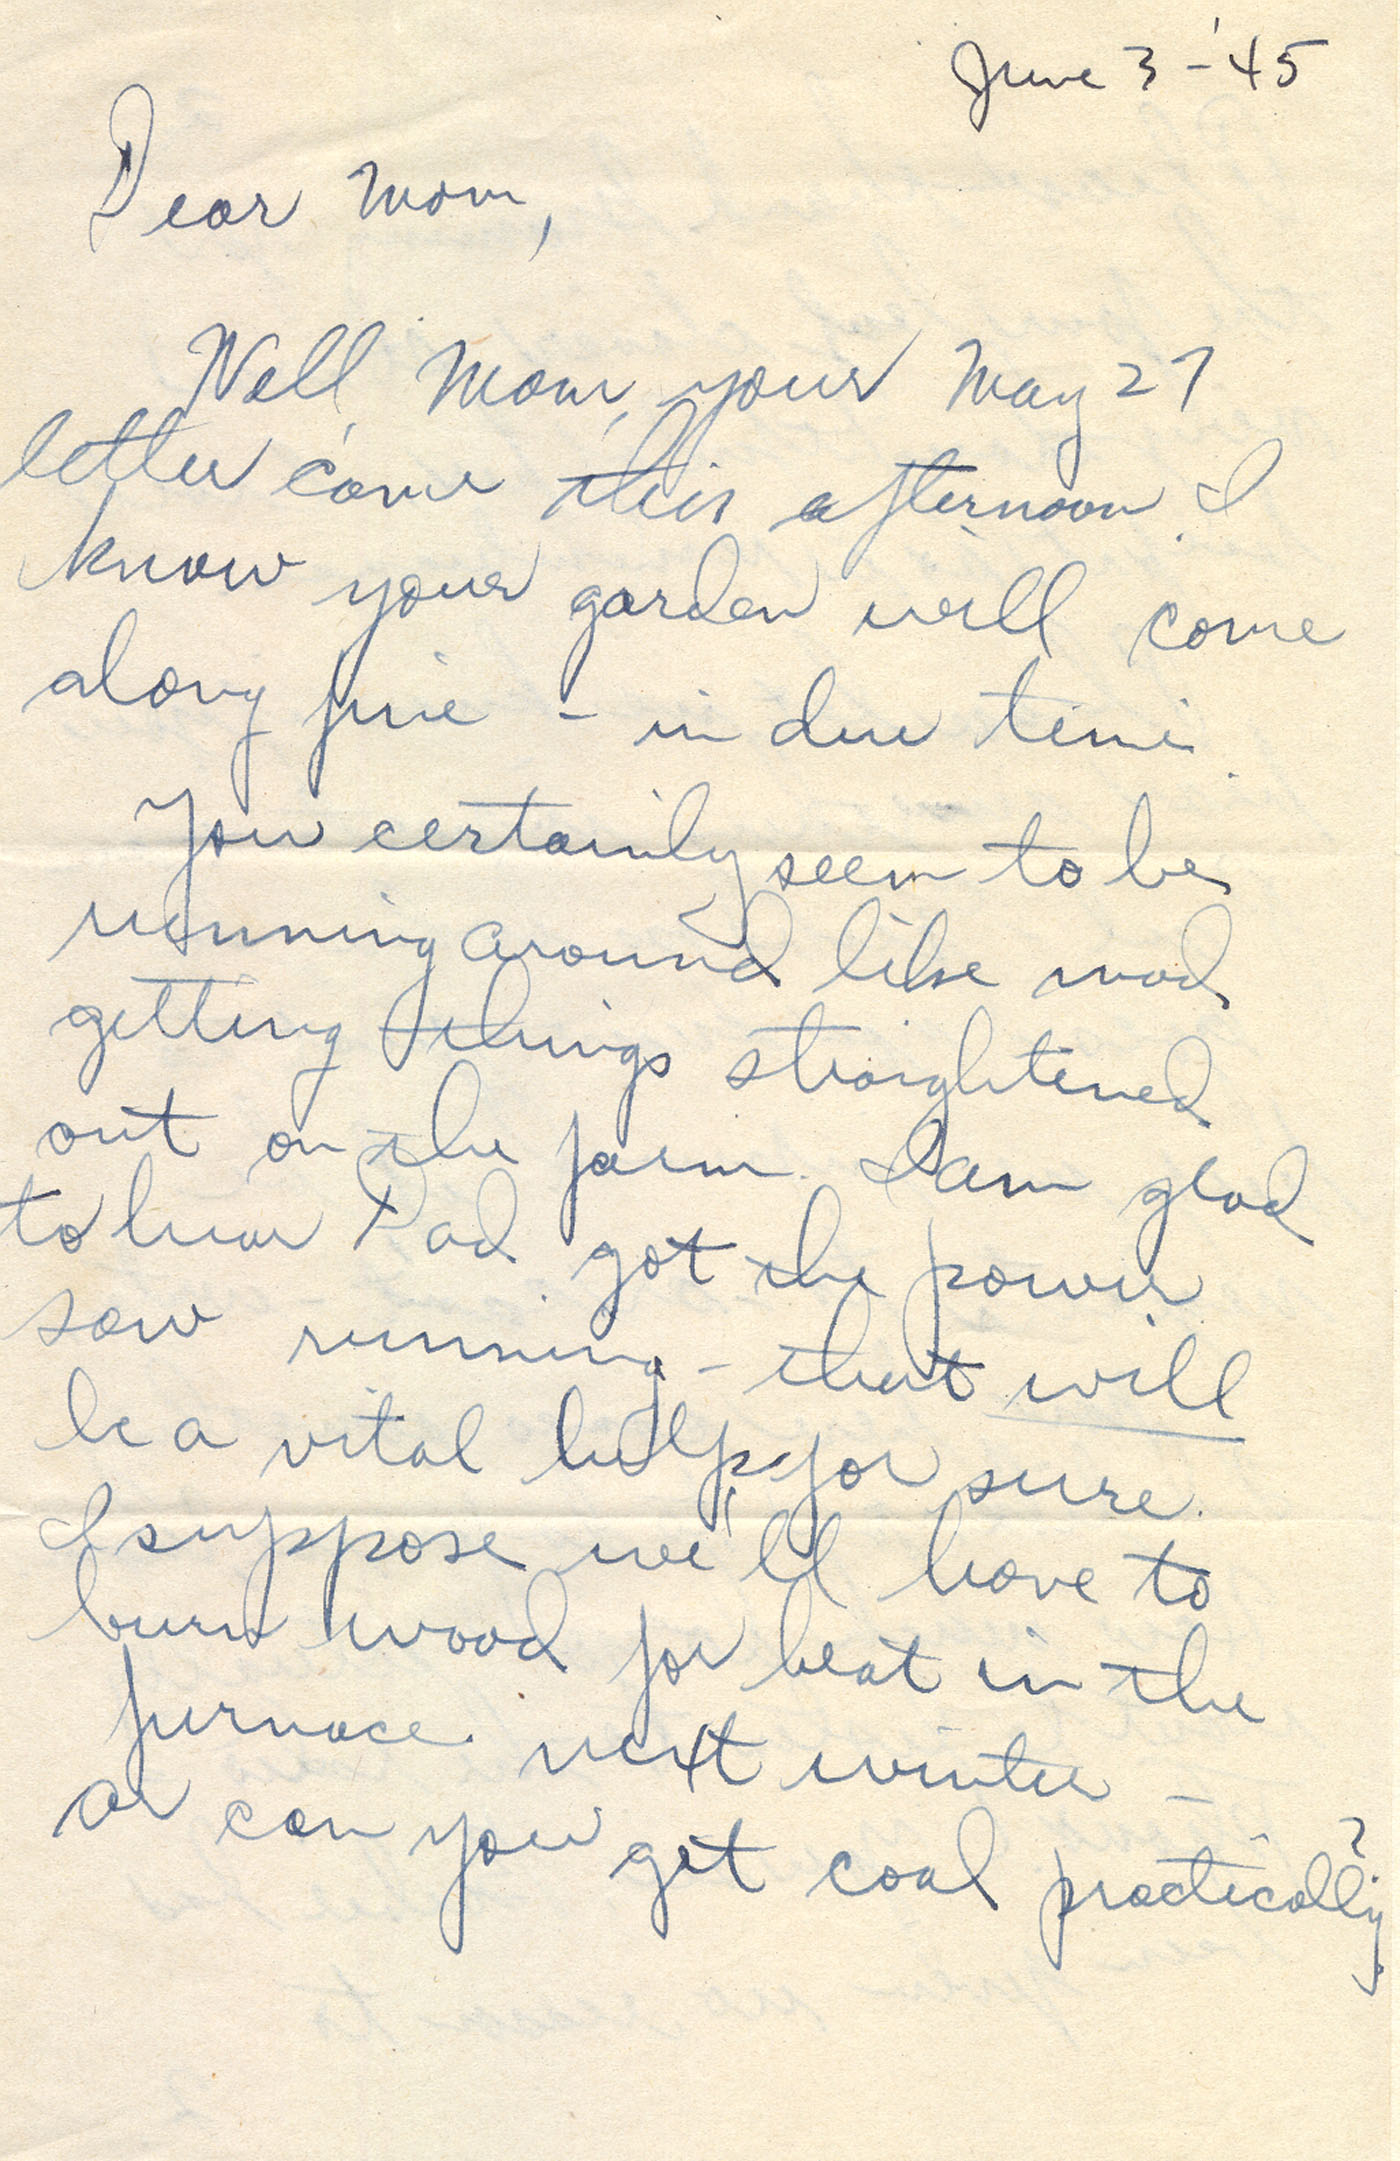 June 3 - '45
Dear Mom,
Well Mom, your May 27
letter came this afternoon. I
know your garden will come
along fine - in due time.
You certainly seem to be
running around like mad
getting things straightened
out on the farm. I am glad
to hear Dad got the power
saw running - that will
be a vital help for sure.
I suppose we'll have to
burn wood for heat in the
furnace next winter -
or can you get coal practically?